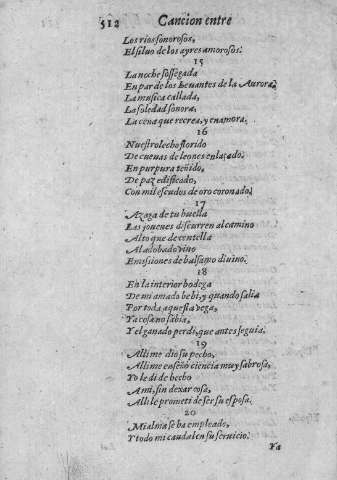 512 Cancion entre
Los rios sonorosos,
El siluo de los ayres amorosos.
15
La noche sossegada
En par de los leuantes de la Aurora.
La musica callada,
La soledad sonora,
La cena que recrea, y enamora.
16
Nuestro lecho florido
De cueuas de leones enlazado.
En purpura teñido,
De paz edificado,
Con mil escudos de oro coronado.
17
A zaga de tu huella
Las jouenes discurren al camino
Al toque de centella
Al adobado vino
Emissiones de balsamo diuino.
18
En la interior bodega
De mi amado bebi, y quando salia
Por toda aquesta vega,
Ya cosa no sabia,
Y el ganado perdi, que antes seguia.
19
Alli me dio su pecho,
Alli me enseñò ciencia muy sabrosa,
Yo le di de hecho
A mi, sin dexar cosa,
Alli le prometi de ser su esposa.
20
Mi alma se ha empleado,
Y todo mi caudal en su seruicio.
Ya